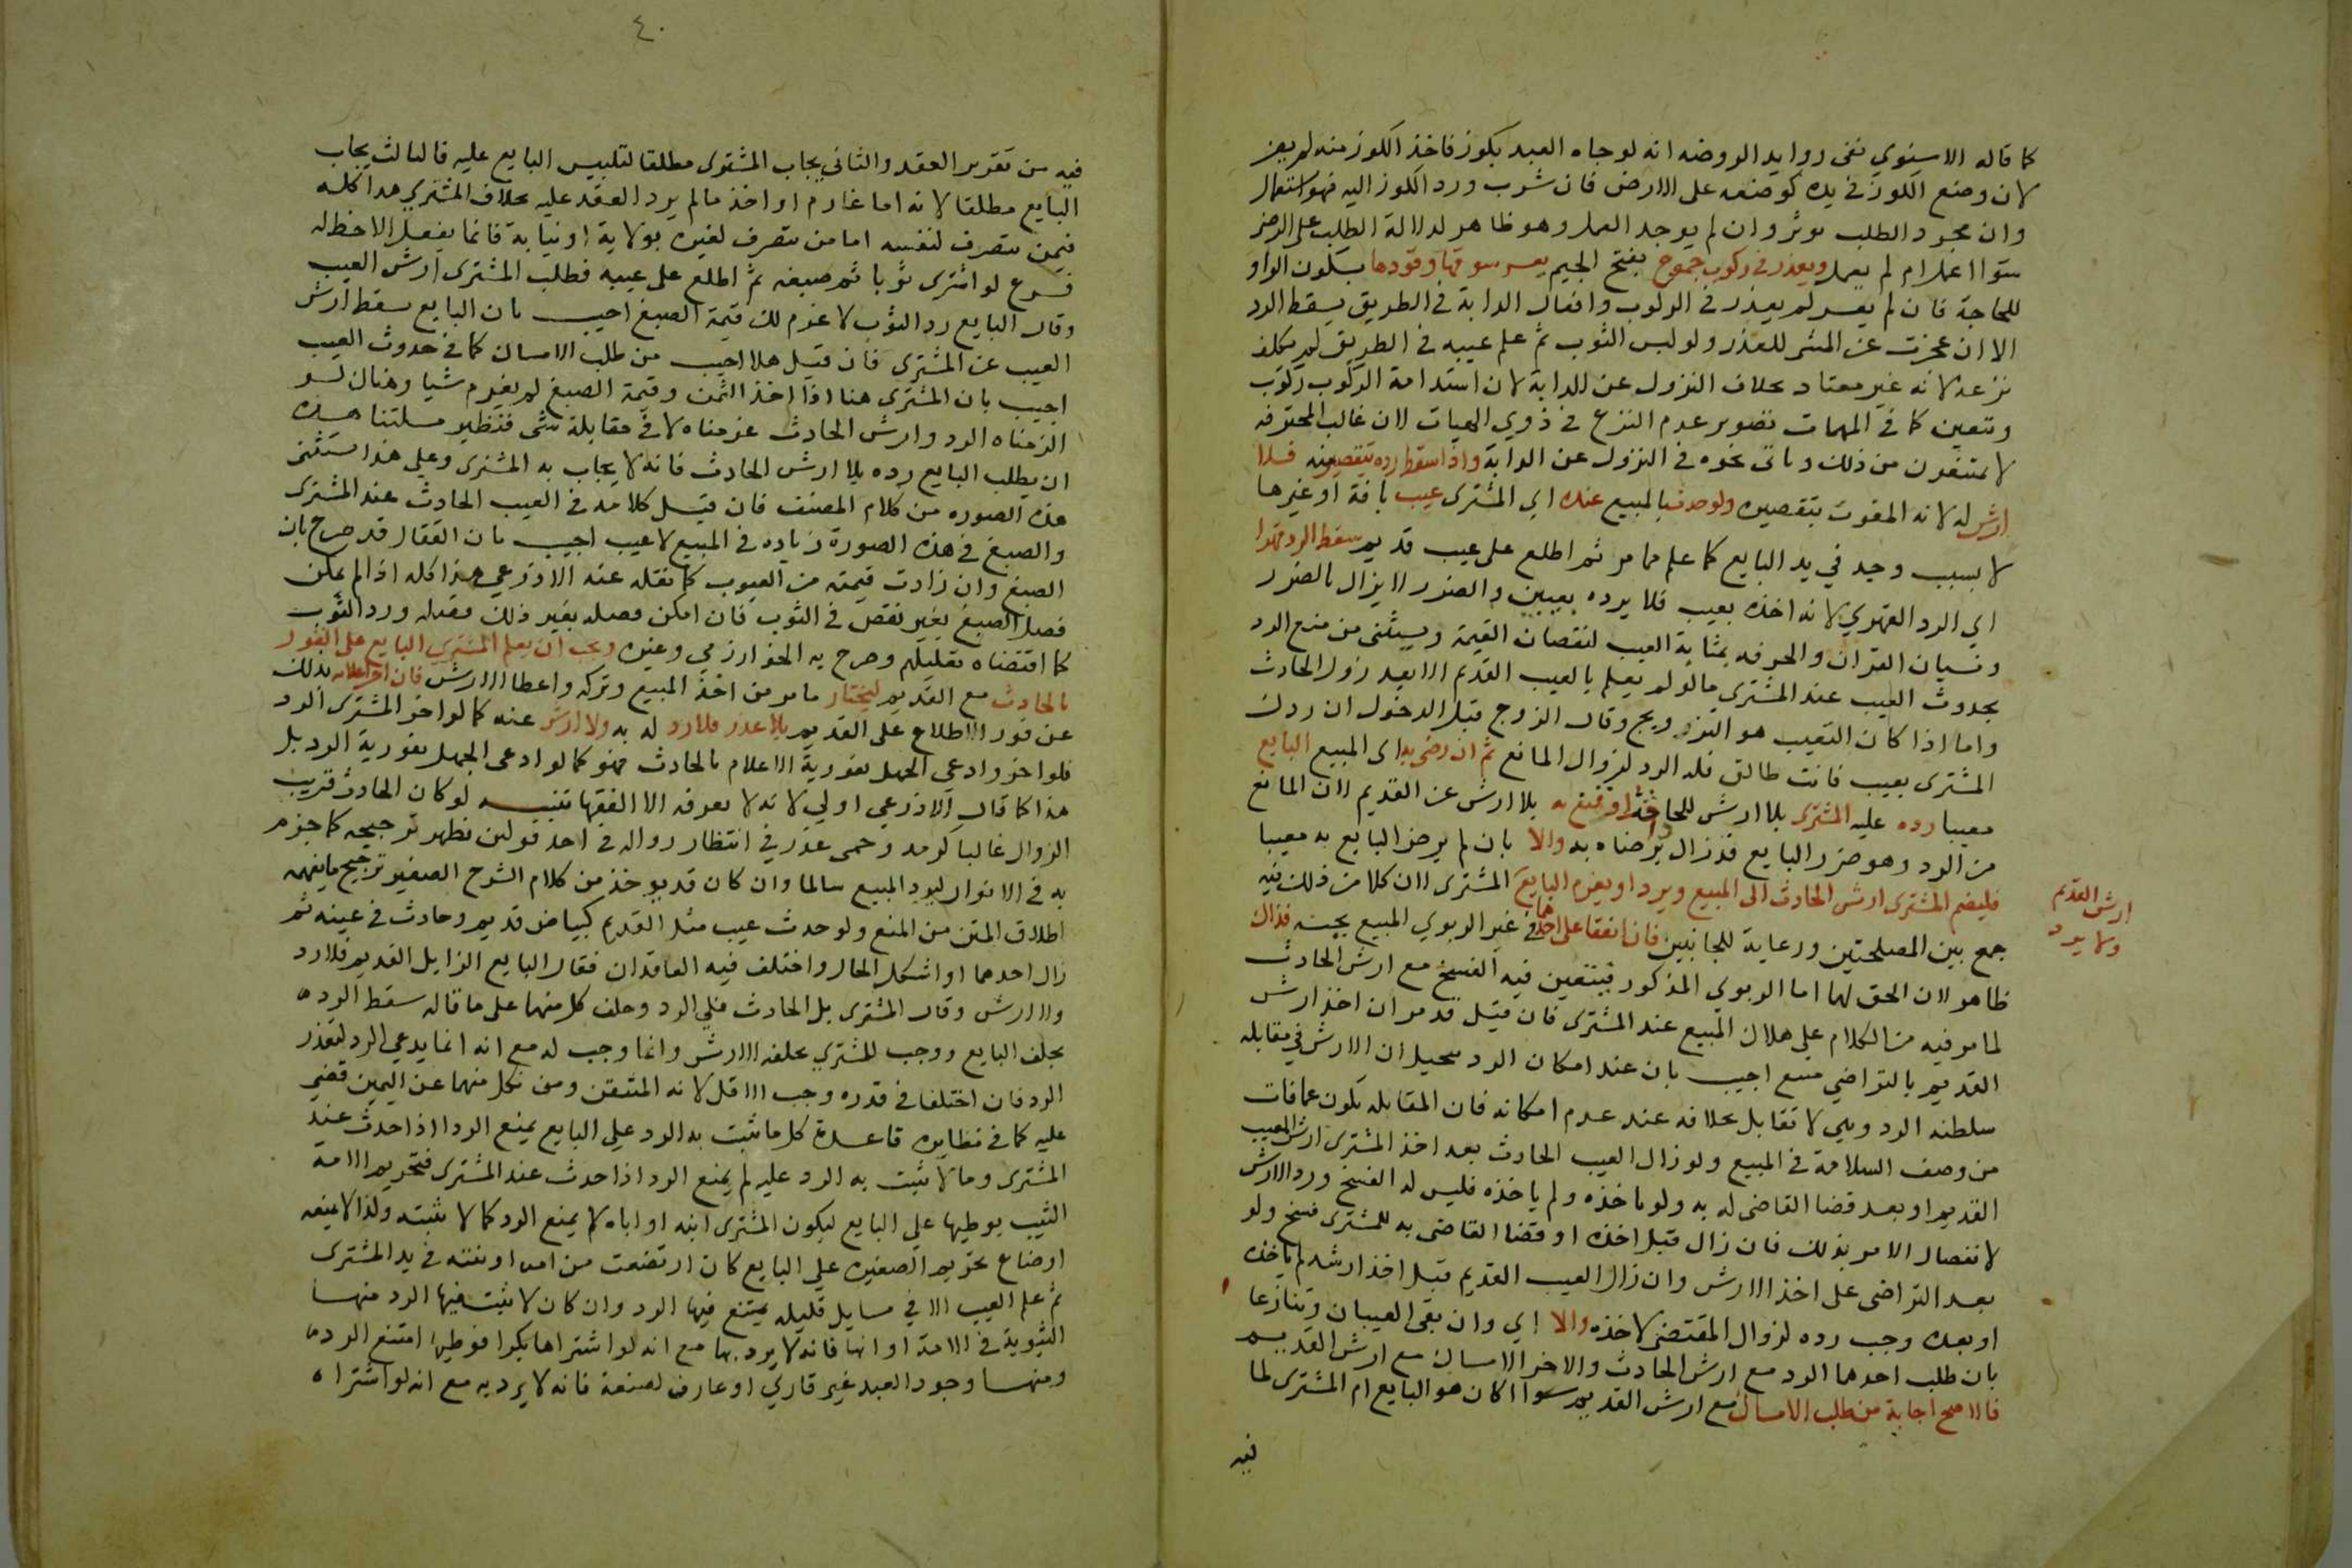 كما قاله الاسنوي نفى زوايد الروضه انه لو جاه العبد بكوز فاخذ الكوز منه لم يضر
لان وضع الكوز في يده كوضعه على الارض فان شرب ورد الكوز اليه فهو استعمال
وان مجرد الطلب موثر وان لم يوجد العمل وهو ظاهر لدلالة الطلب على الرضى
سوا اعمل ام لم يعمل ويعذر في ركوب جموح بفتح الجيم يعسر سوقها وقودها بسكون الواو
للحاجة فان لم يعسر لم يعذر في الركوب وانعال الدابة في الطريق يسقط الرد
الا ان عجزت عن المشي للعذر ولو لبس الثوب ثم علم عيبه في الطريق لم يكلف
نزعه لانه غير معتاد بخلاف النزول عن الدابة لان استدامة الركوب ركوب
وتتعين كما في المهمات تصوير عدم النزع في ذوي الهيات لان غالب المحترفه
لا يمتنعون من ذلك وياتي نحوه في النزول عن الدابة واذا سقط رده بتقصير منه فلا
ارش له لانه المفوت بتقصيره ولو حدث بالمبيع عنده اي المشترى عيب بافة او غيرها
لا بسبب وجد في يد البايع كما علم مما مر ثم اطلع على عيب قديم سقط الرد قهرا
اي الرد القهري لانه اخذه بعيب فلا يرده بعيبين والضرر لا يزال بالضرر
ونسيان القران والحرفه بمثابة العيب لنقصان القيمة ويستثنى من منع الرد
بحدوث العيب عند المشتري ما لو لم يعلم بالعيب القديم الا بعد زوال الحادث
واما اذا كان العيب هو التزويج وقال الزوج قبل الدخول ان ردك
المشترى بعيب فانت طالق فله الرد لزوال المانع ثم ان رضى به اى المبيع البايع
معيبا رده عليه المشترى بلا ارش للحادث او قنع به بلا ارش عن القديم لان المانع
من الرد وهو ضرر البايع قد زال برضاه به والا بان لم يرض البايع به معيبا
فليضم المشترى ارش الحادث الى المبيع ويرد او يغرم البايع المشترى لان كلا من ذلك فيه
ارش القديم
ولا يرد
جمع بين المصلحتين ورعاية للجانبين فان اتفقا على احدهما في غير الربوي المبيع بجنسه فذاك
ظاهر لان الحق لهما اما الربوي المذكور فيتعين فيه الفسخ مع ارش الحادث
لما مر فيه من الكلام على هلاك المبيع عند المشترى فان قيل قد مر ان اخذ ارش
القديم بالتراضي ممتنع اجيب بان عند امكان الرد يتخيل ان الارش في مقابله
سلطنه الرد وهي لا تقابل بخلافه عند عدم امكانه فان المقابله تكون عما فات
من وصف السلامة في المبيع ولو زال العيب الحادث بعد اخذ المشترى ارش العيب
القديم او بعد قضا القاضى له به ولو ياخذه ولم ياخذه فليس له الفسخ ورد الارش
لانفصال الامر بذلك فان زال قبل اخذه او قضا القاضى به للمشترى فسخ ولو
بعد التراضى على اخذ الارش وان زال العيب القديم قبل اخذ ارشه لم ياخذه
او بعده وجب رده لزوال المقتضى لاخذه والا اي وان بقى العيبان وتنازعا
بان طلب احدهما الرد مع ارش الحادث والاخر الامساك مع ارش القديم
فالاصح اجابة من طلب الامساك مع ارش القديم سوا اكان هو البايع ام المشترى لما
فيه
٤٠
فيه من تقرير العقد والثاني يجاب المشترى مطلقا لتلبيس البايع عليه فالثالث يجاب
البايع مطلقا لانه اما غارم او اخذ ما لم يرد العقد عليه بخلاف المشتري هذا كله
فيمن يتصرف لنفسه اما من يتصرف لغيره بولاية او نيابة فانما يفعل الاحظ له
فرع لو اشترى ثوبا ثم صبغه ثم اطلع على عيبه فطلب المشترى ارش العيب
وقال البايع رد الثوب لاغرم لك قيمة الصبغ اجيب بان البايع يسقط ارش
العيب عن المشترى فان قيل هلا اجيب من طلب الامساك كما في حدوث العيب
اجيب بان المشترى هنا اذا اخذ الثمن وقيمة الصبغ لم يغرم شيا وهناك لو
الزمناه الرد وارش الحادث غرمناه لا في مقابلة شى فنظير مسلتنا هذه
ان يطلب البايع رده بلا ارش الحادث فانه لا يجاب به المشترى وعلى هذا تستثنى
هذه الصوره من كلام المصنف فان قيل كلامه في العيب الحادث عند المشترى
والصبغ في هذه الصورة زياده في المبيع لا عيب اجيب بان القفال قد صرح بان
الصبغ وان زادت قيمته من العيوب كما نقله عنه الاذرعي هذا كله اذا لم يمكن
فصل الصبغ بغير نقص في الثوب فان امكن فصله بغير ذلك فصله ورد الثوب
كما اقتضاه تعليلهم وصرح به الخوارزمي وغيره ويجب ان يعلم المشتري البايع على الفور
بالحادث مع القديم ليختار ما مر من اخذ المبيع وتركه واعطا الارش فان اخر اعلامه بذلك
عن فور الاطلاع على القديم بلا عذر فلا رد له به ولا ارش عنه كما لو اخر المشترى الرد
فلو اخر وادعى الجهل بفورية الاعلام بالحادث فهو كما لو ادعى الجهل بفورية الرد بل
هذا كما قال الاذرعي اولى لانه لا يعرفه الا الفقها تنبيه لو كان الحادث قريب
الزوال غالبا كرمد وحمى عذر في انتظار زواله في احد قولين يظهر ترجيحه كما جزم
به في الانوار ليرد المبيع سالما وان كان قد يوخذ من كلام الشرح الصغير ترجيح ما يفهمه
اطلاق المتن من المنع ولو حدث عيب مثل القديم كبياض قديم وحادث في عينه ثم
زال احدهما او اشكل الحال واختلف فيه العاقدان فقال البايع الزايل القديم فلا رد
ولا ارش وقال المشترى بل الحادث فلي الرد وحلف كل منهما على ما قاله سقط الرد
بحلف البايع ووجب للمشتري بحلفه الارش وانما وجب له مع انه انما يدعي الرد لتعذر
الرد فان اختلفا في قدره وجب الاقل لانه المتيقن ومن نكل منهما عن اليمين قضى
عليه كما في نظايره قاعدة كل ما يثبت به الرد على البايع يمنع الرد اذا حدث عند
المشترى وما لا يثبت به الرد عليه لم يمنع الرد اذا حدث عند المشترى فتحريم الامة
الثيب بوطيها على البايع ليكون المشترى ابنه او اباه لا يمنع الرد كما لا يثبته ولذا لا يمنعه
ارضاع تحريم الصغيره على البايع كان ارتضعت من امه او بنته في يد المشترى
ثم علم العيب الا في مسايل قليله يمتنع فيها الرد وان كان لا يثبت فيها الرد منها
الثيوبة في الامة او انها فانه لا يرد بها مع انه لو اشتراها بكرا فوطيها امتنع الرد
ومنها وجود العبد غير قاري او عارف لصنعة فانه لا يرد به مع انه لو اشتراه